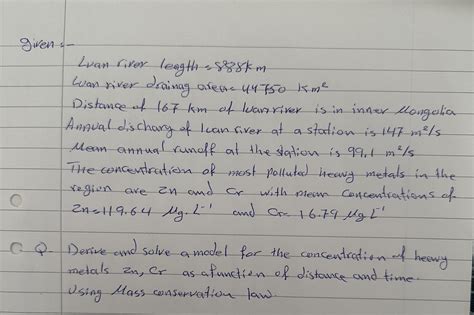 given :-
Luan river length = 888 km
Luan river drainag area = 44750 Km²
Distance of 167 km of luan river is in inner Mongolia
Annual discharg of luan river at a station is 147 m²/s
Mean annual runoff at the station is 99,1 m²/s
The concentration of most polluted heavy metals in the
region are Zn and Cr with mean concentrations of
Zn = 119.64 µg. L⁻¹ and Cr = 16.79 µg L⁻¹
Q. Derive and solve a model for the concentration of heavy
metals Zn, Cr as a function of distance and time
Using Mass conservation law.